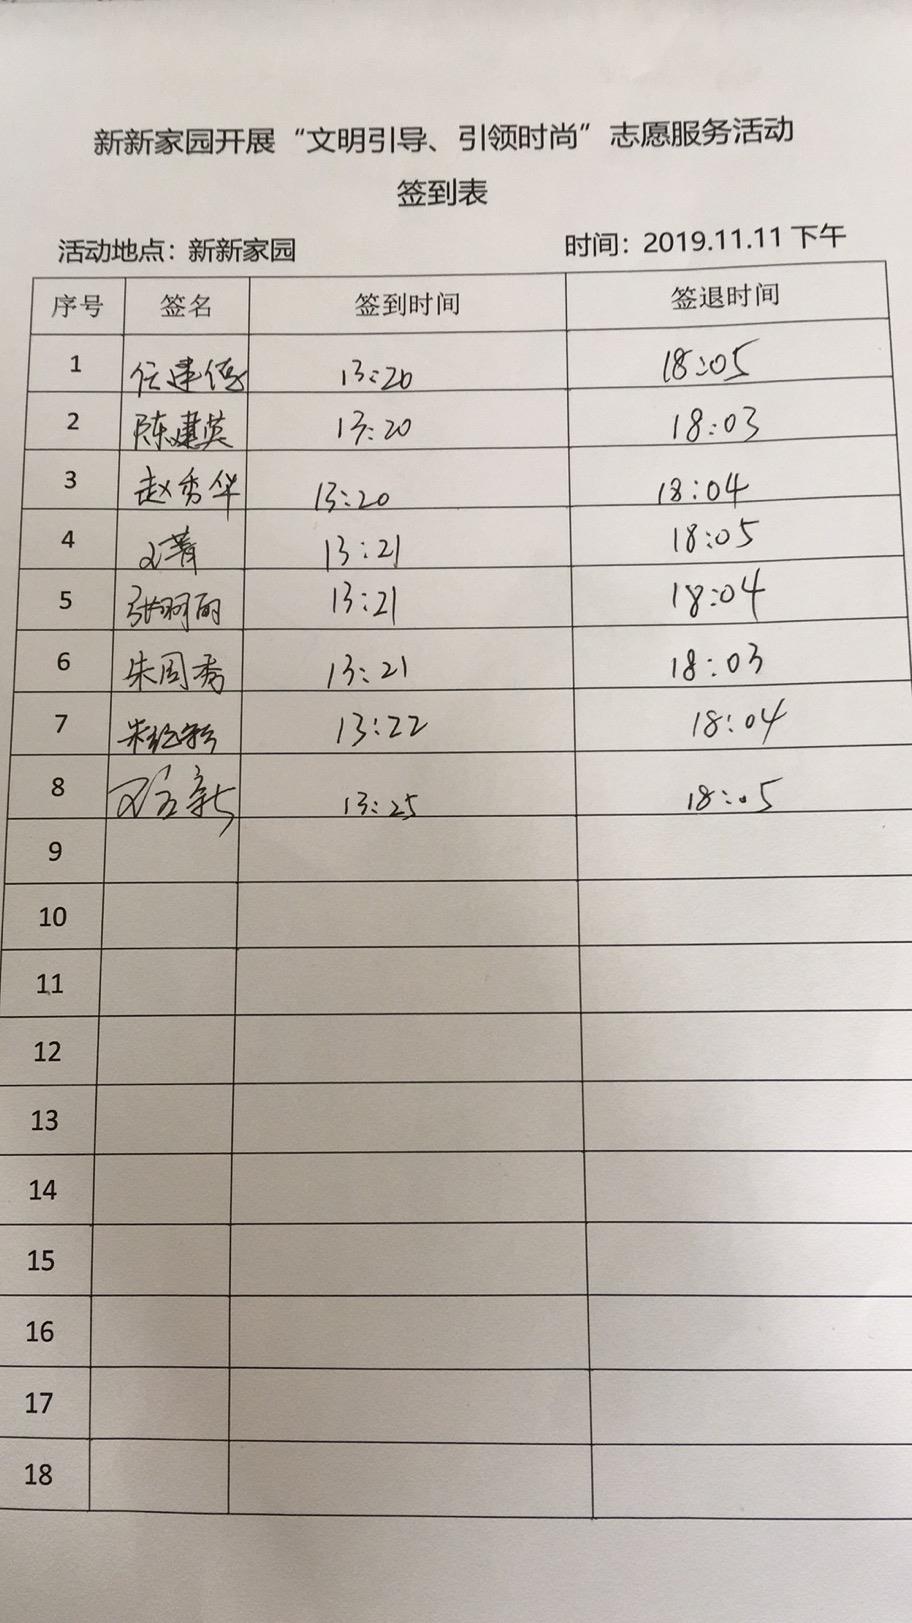 新新家园开展“文明引导、引领时尚”志愿服务活动
签到表
活动地点：新新家园 时间：2019.11.11 下午
序号 签名 签到时间 签退时间
1 任建德 13:20 18:05
2 陈建英 13:20 18:03
3 赵秀华 13:20 18:04
4 菁 13:21 18:05
5 张 丽 13:21 18:04
6 朱周秀 13:21 18:03
7 朱 13:22 18:04
8 新 13:25 18:05
9
10
11
12
13
14
15
16
17
18